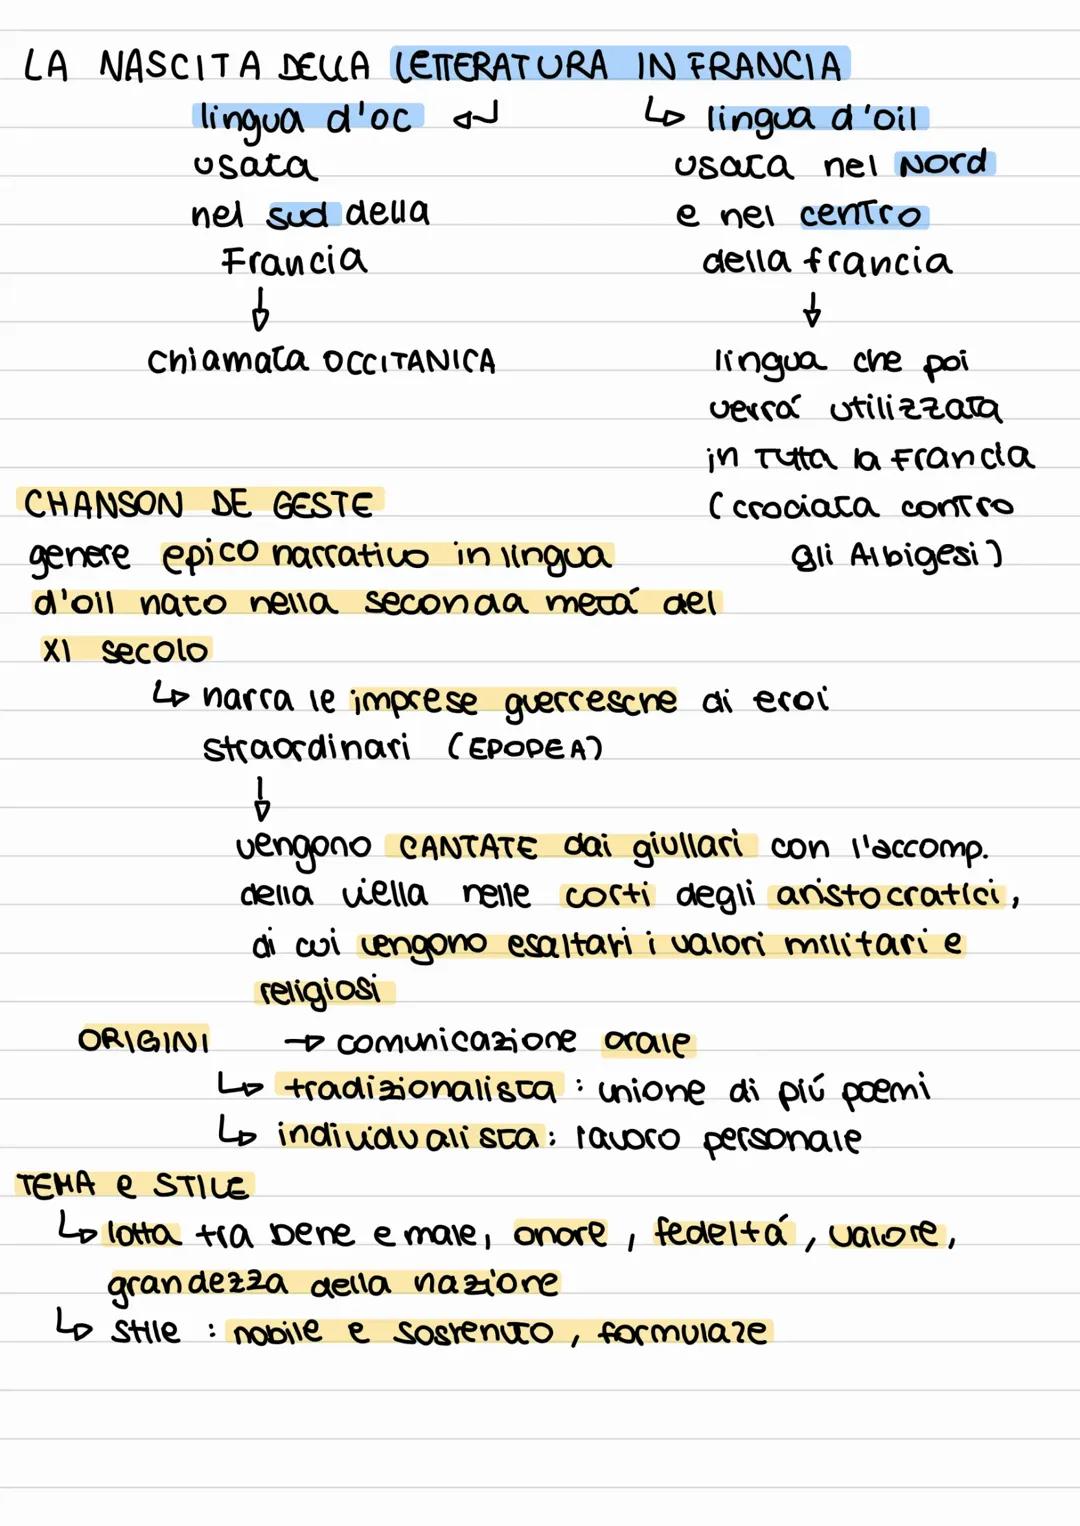 LA NASCITA DELLA LETTERATURA IN FRANCIA
lingua d'oc
usata
nel sud della
Francia
chiamata OCCITANICA
lingua d'oil
usata nel Nord
e nel centro
della francia
lingua che poi
verrá utilizzata
in tutta la Francia
(crociata contro
gli Albigesi)
CHANSON DE GESTE
genere epico narrativo in lingua
d'oil nato nella seconda metá del
XI secolo
narra le imprese guerresche di eroi
straordinari (EPOPEA)
vengono CANTATE dai giullari con l'accomp.
della viella nelle corti degli aristocratici,
di cui vengono esaltati i valori militari e
religiosi
ORIGINI → comunicazione orale
tradizionalista : unione di piú poemi
individualista : lavoro personale
TEMA e STILE
lotta tra bene e male, onore, fedeltá, valore,
grandezza della nazione
stile : nobile e sostenuto, formulare